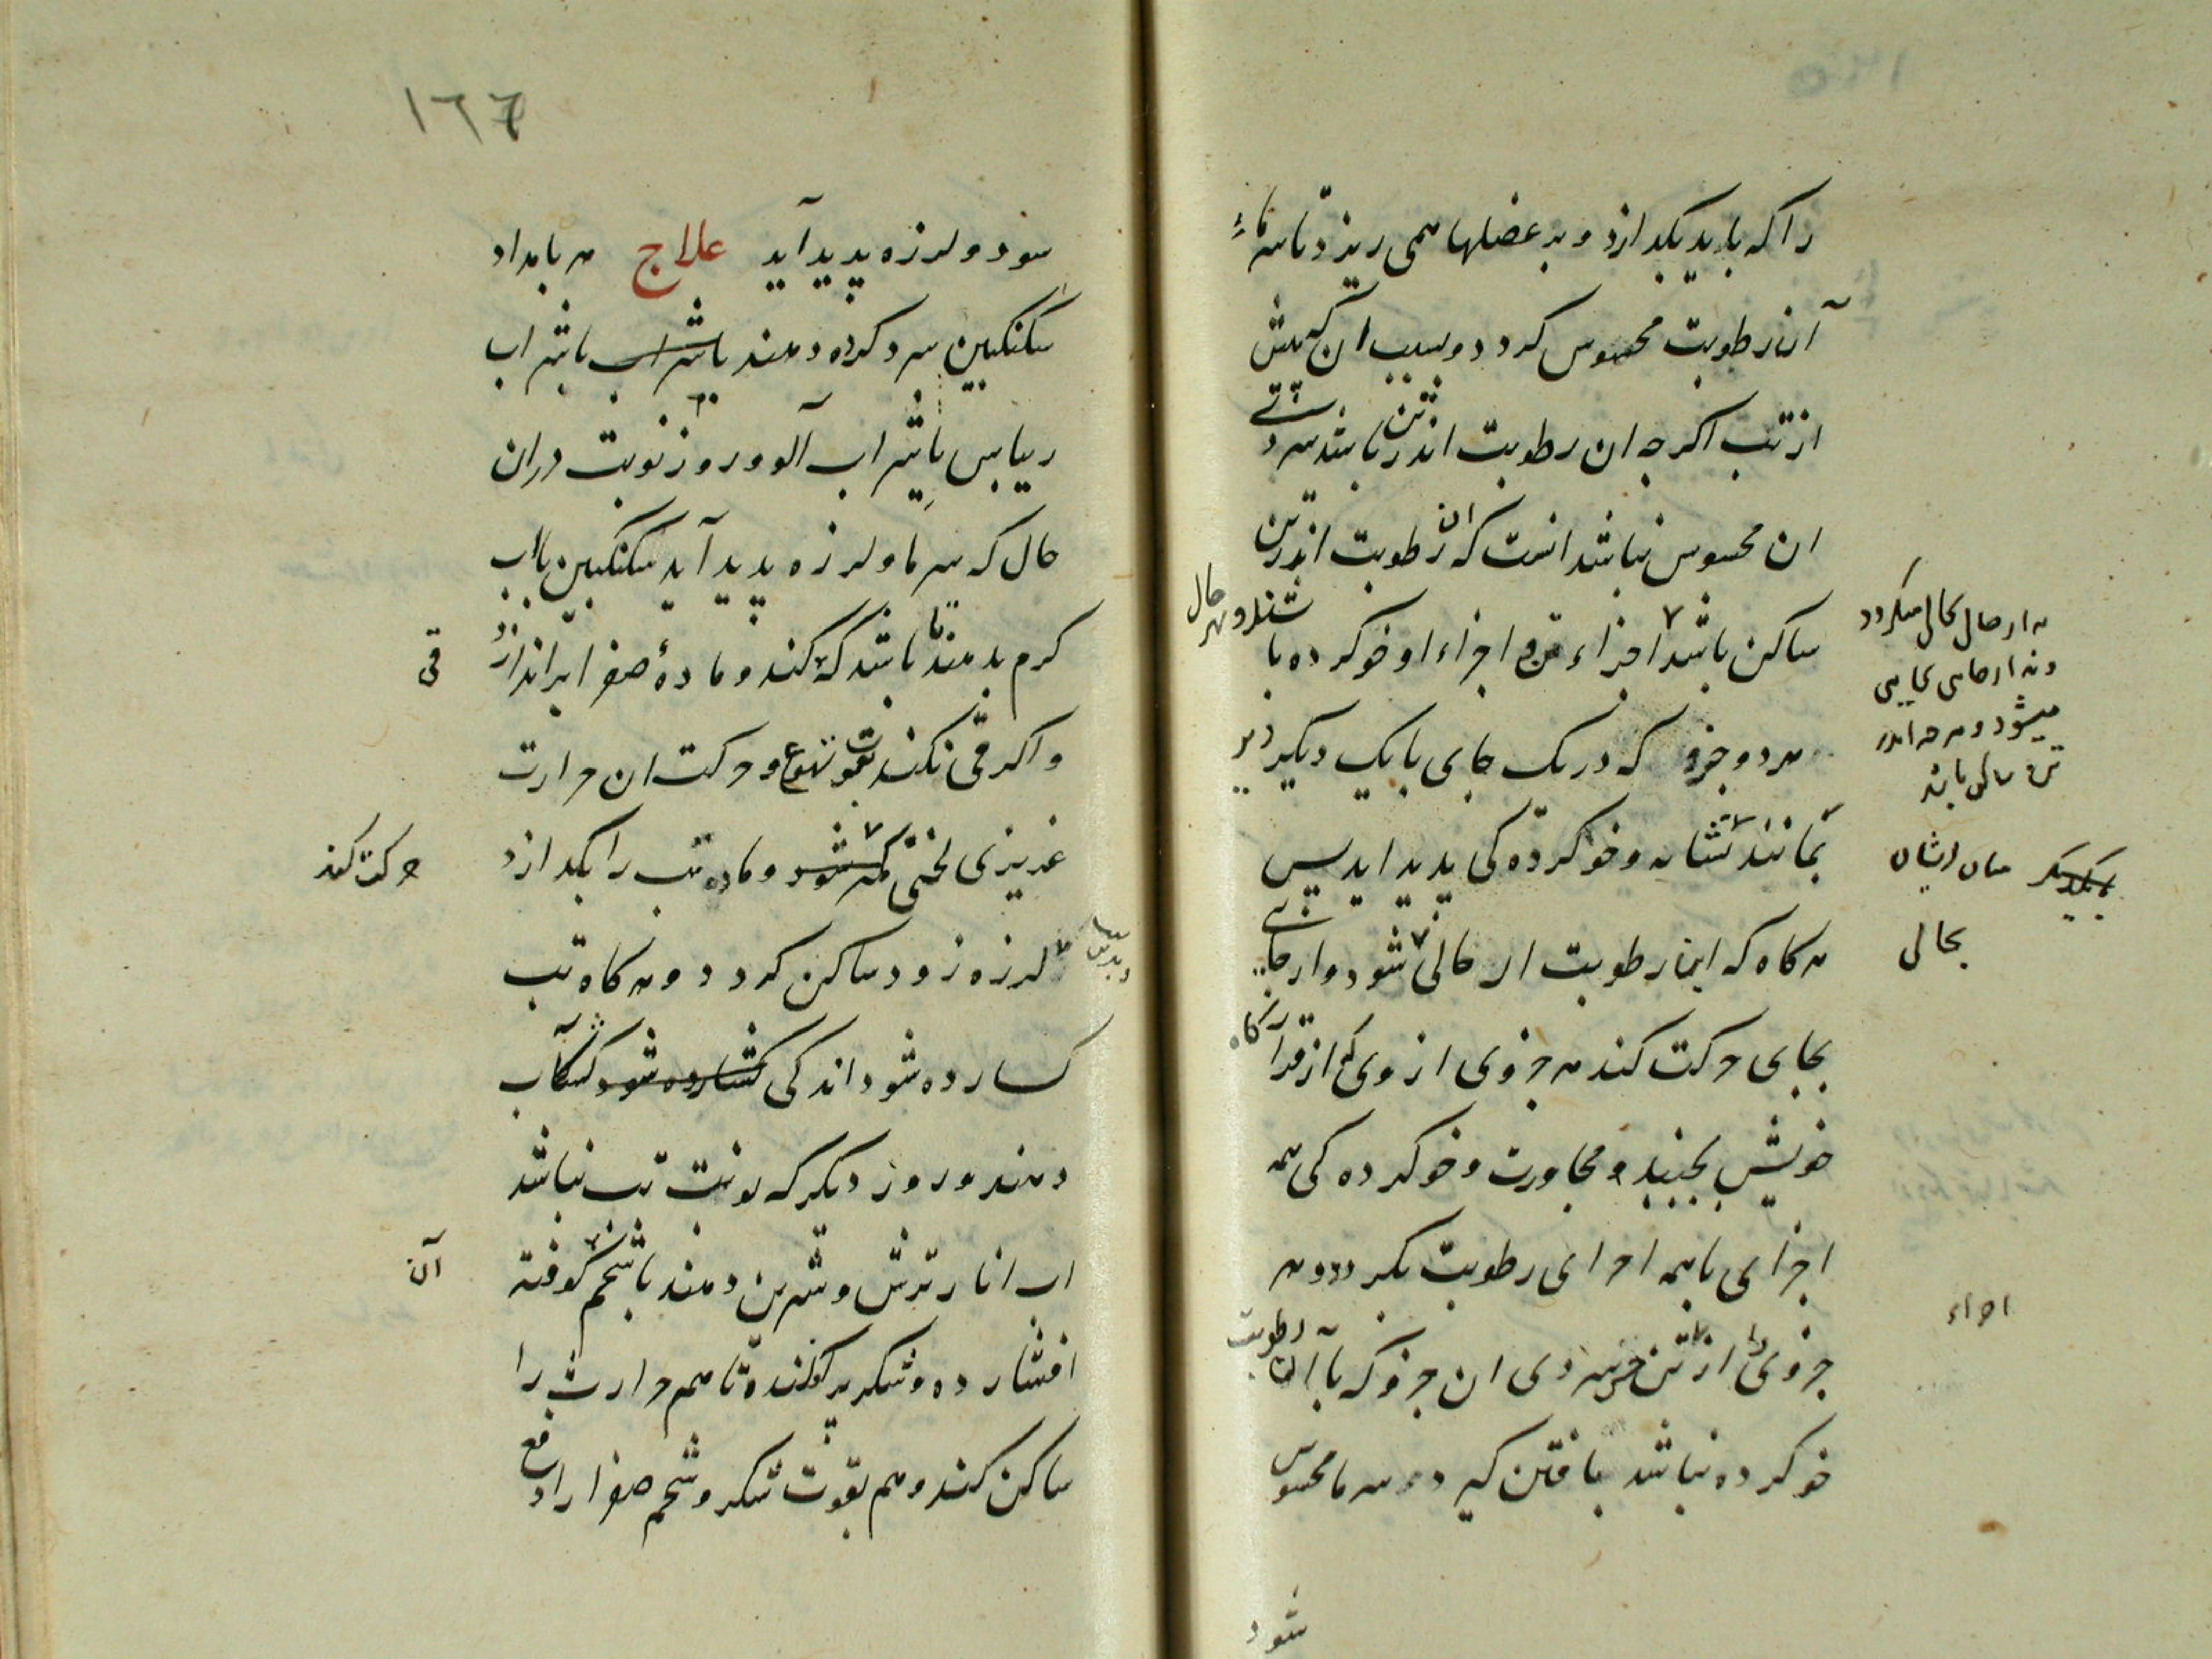 را که باید بکدازد و بر عضلها همی ریزد تا سرماء
آن رطوبت محسوس کردد و سبب ان که پیش
از تب اکرجه ان رطوبت اندر تن باشد سردی
ان محسوس نباشد انست که ان رطوبت اندر تن
ساکن باشد اجزاء تن و اجزاء او خو کرده با
هر دو جزو که در یک جای با یک دیکر دیر
بمانند و خو کرده کی پدید اید پس
هر کاه که این رطوبت از حالی شود و از جایی
بجای حرکت کند هر جزوی از وی از قرارکاه
خویش بجنبد و مجاورت و خو کرده کی همه
اجزای با همه اجزای رطوبت بکردد و هر
جزوی از تن سردی ان جزو که با آن رطوبت
خو کرده نباشد یافتن کیرد سرما محسوس
شود
نه از حال بحال میکردد
و نه از جایی بجایی
میشود و هرچه اندر
تن ساکن باشد
میان ایشان
بحالی
اجزاء
١٦٦
شود و لرزه پدید آید علاج هر بامداد
سکنکبین سرد کرده دهند یا شراب
ریباس یا شراب آلو و روز نوبت دران
حال که سرما و لرزه پدید آید سکنکبین با اب
کرم بدهند تا باشد که کند و مادهٔ صفرا براندازد
قی
و اکر قی نکند بقوت تهوع و حرکت ان حرارت
غریزی لختی کمتر شود و ماده تب را بکدازد
حرکت کند
لرزه زود ساکن کردد و هر کاه تب
کسارده شود اندکی کسارده شود کشکاب
دهند و روز دیکر که نوبت تب نباشد
اب انار ترش و شیرین دهند با شحم کوفته
آن
افشارده و شکر برفکنده تا هم حرارت را
ساکن کند و هم بقوت شکر و شحم صفرا را دفع